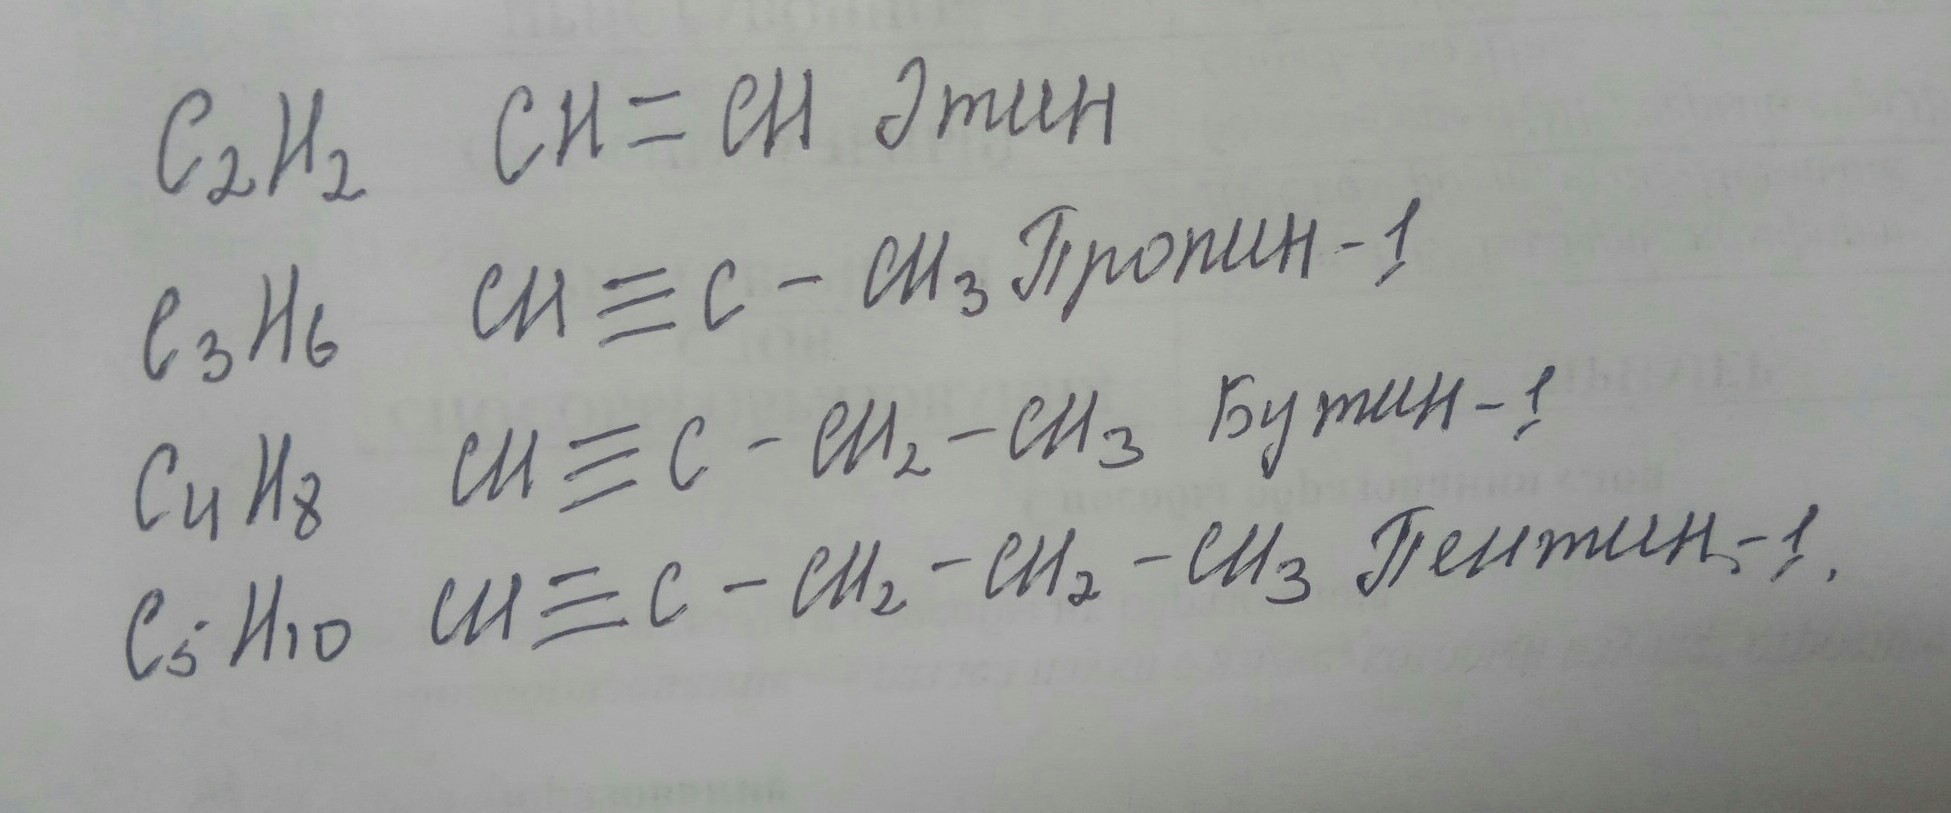 C₂H₂ CH=CH Этин
C₃H₆ CH≡C-CH₃ Пропин-1
C₄H₈ CH≡C-CH₂-CH₃ Бутин-1
C₅H₁₀ CH≡C-CH₂-CH₂-CH₃ Пентин-1.